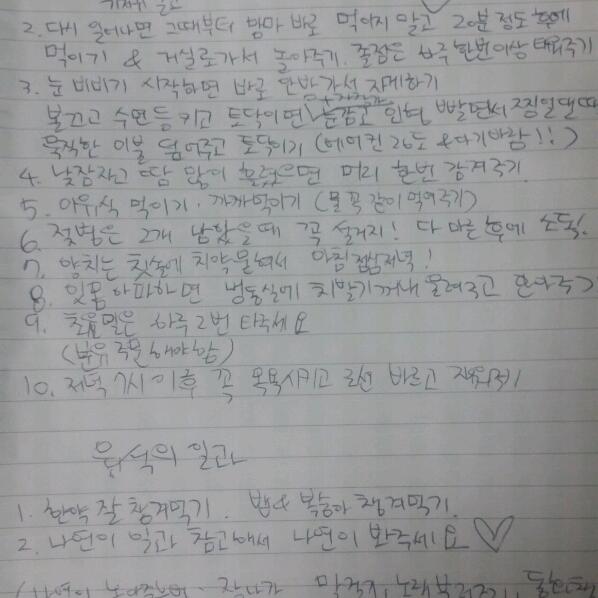 2. 다시 일어나면 그때부터 맘마 바로 먹이지 말고 20분 정도 후에
먹이기 & 거실로가서 놀아주기. 쫄쫄은 하루 한번이상 태워주기
3. 눈 비비기 시작하면 바로 안방 가서 재우기
불끄고 수면등 키고 토닥이면 눈감고 인형 빨면서 징징댈때
묵직한 이불 덮어주고 토닥이기 (에어컨 26도 & 아기바람!!)
4. 낮잠자고 땀 많이 흘렸으면 머리 한번 감겨주기
5. 이유식 먹이기. 까까먹이기 (물 꼭 같이 먹여주기)
6. 젖병은 2개 남았을때 꼭 설거지! 다 마른 후에 소독.
7. 양치는 칫솔에 치약묻혀서 아침점심저녁!
8. 잇몸 아파하면 냉동실에 치발기꺼내 물려주고 안아주기
9. 초유밀은 하루 2번 타주세요
(분유 주문해야함)
10. 저녁 7시 이후 꼭 목욕시키고 로션 바르고 재우기
의 일과
1. 한약 잘 챙겨먹기. 밥 & 복숭아 챙겨먹기.
2. 나연이 일과 참고해서 나연이 봐주세요 ♡